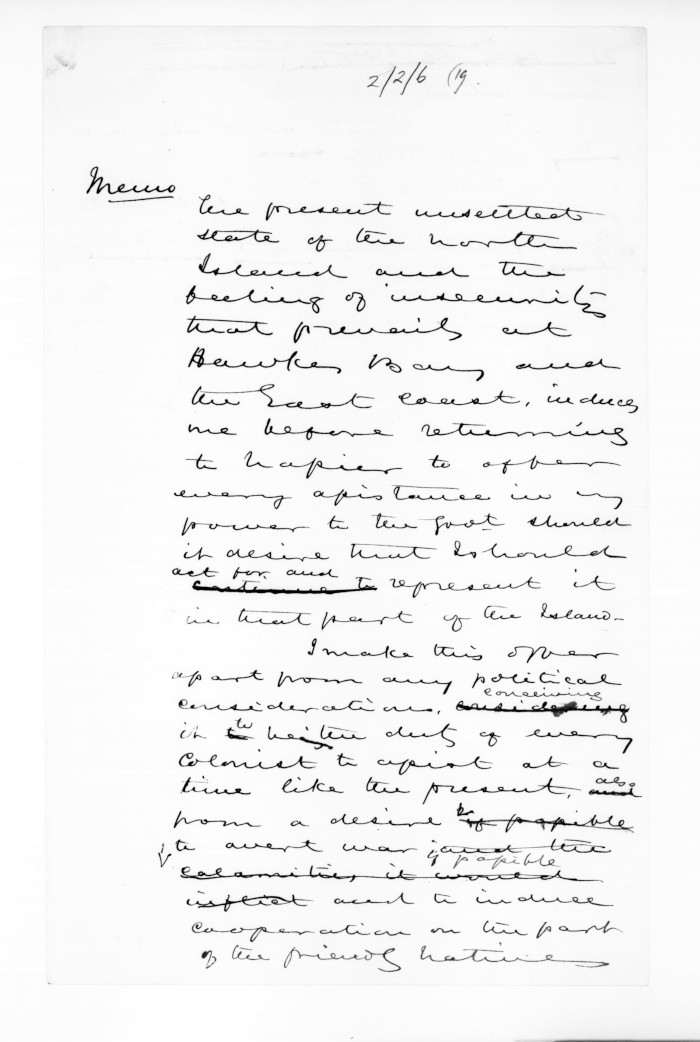 2/2/6 (19.
Memo
The present unsettled
state of the North
Island and the
feeling of insecurity
that prevails at
Hawkes Bay and
the East Coast, induces
me before returning
to Napier to offer
every assistance in my
power to the Govt should
it desire that I should
act for and
continue to represent it
in that part of the Island-
I make this offer
apart from any political
conceiving
considerations, considering
it to be the duty of every
Colonist to assist at a
also
time like the present, and
from a desire if possible
to avert war and the
if possible
calamities it would
inflict and to induce
cooperation on the part
of the friendly Natives